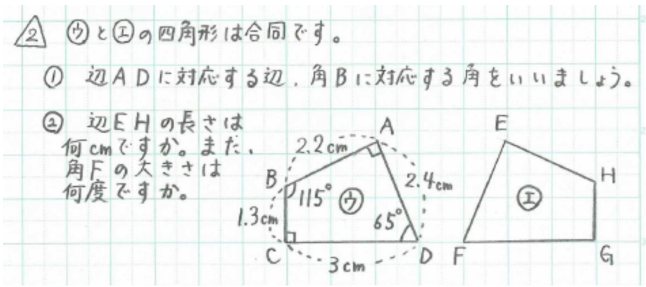 2 ウとエの四角形は合同です。
① 辺ADに対応する辺、角Bに対応する角をいいましょう。
② 辺EHの長さは
何cmですか。また、
角Fの大きさは
何度ですか。
A
E
2.2cm
B
2.4cm
H
115°
ウ
エ
1.3cm
65°
C
D
F
G
3cm